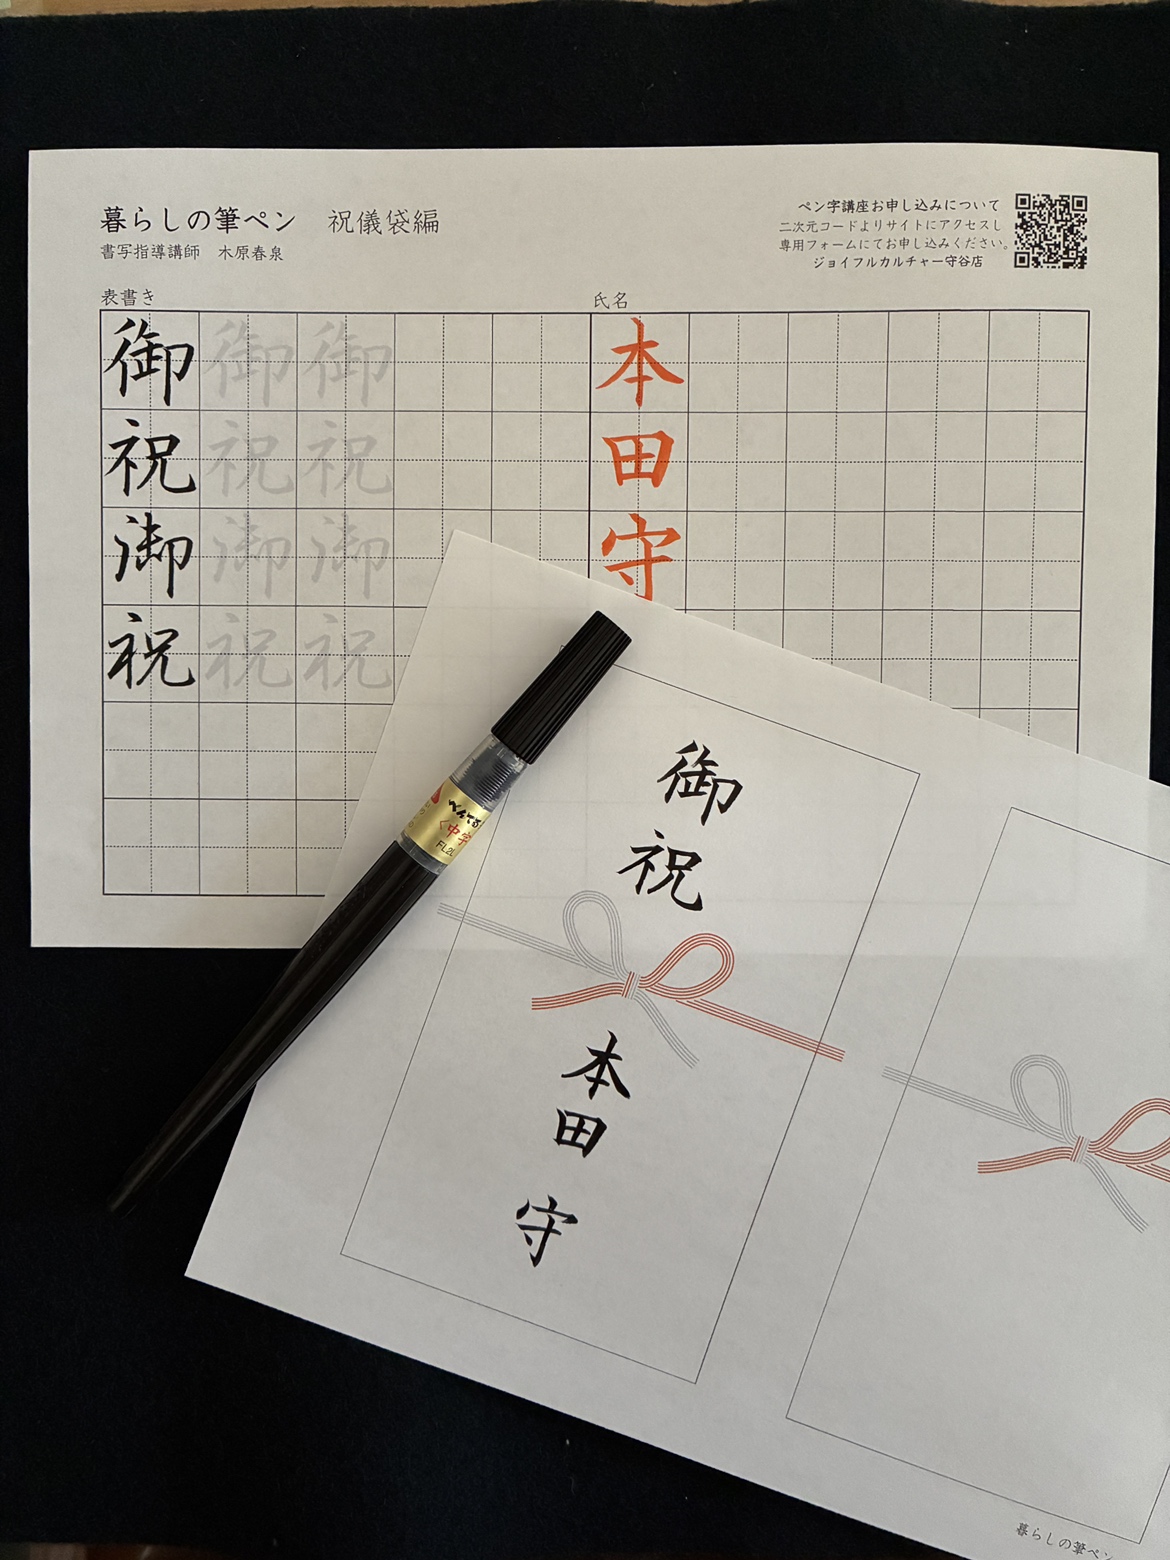 暮らしの筆ペン　祝儀袋編
書写指導講師　木原春泉
ペン字講座お申し込みについて
二次元コードよりサイトにアクセスし
専用フォームにてお申し込みください。
ジョイフルカルチャー守谷店
表書き
氏名
御祝御祝
御祝御祝
御祝御祝
本田守
ぺんてる
〈中字
FL2L
御祝
本田　守
暮らしの筆ペン